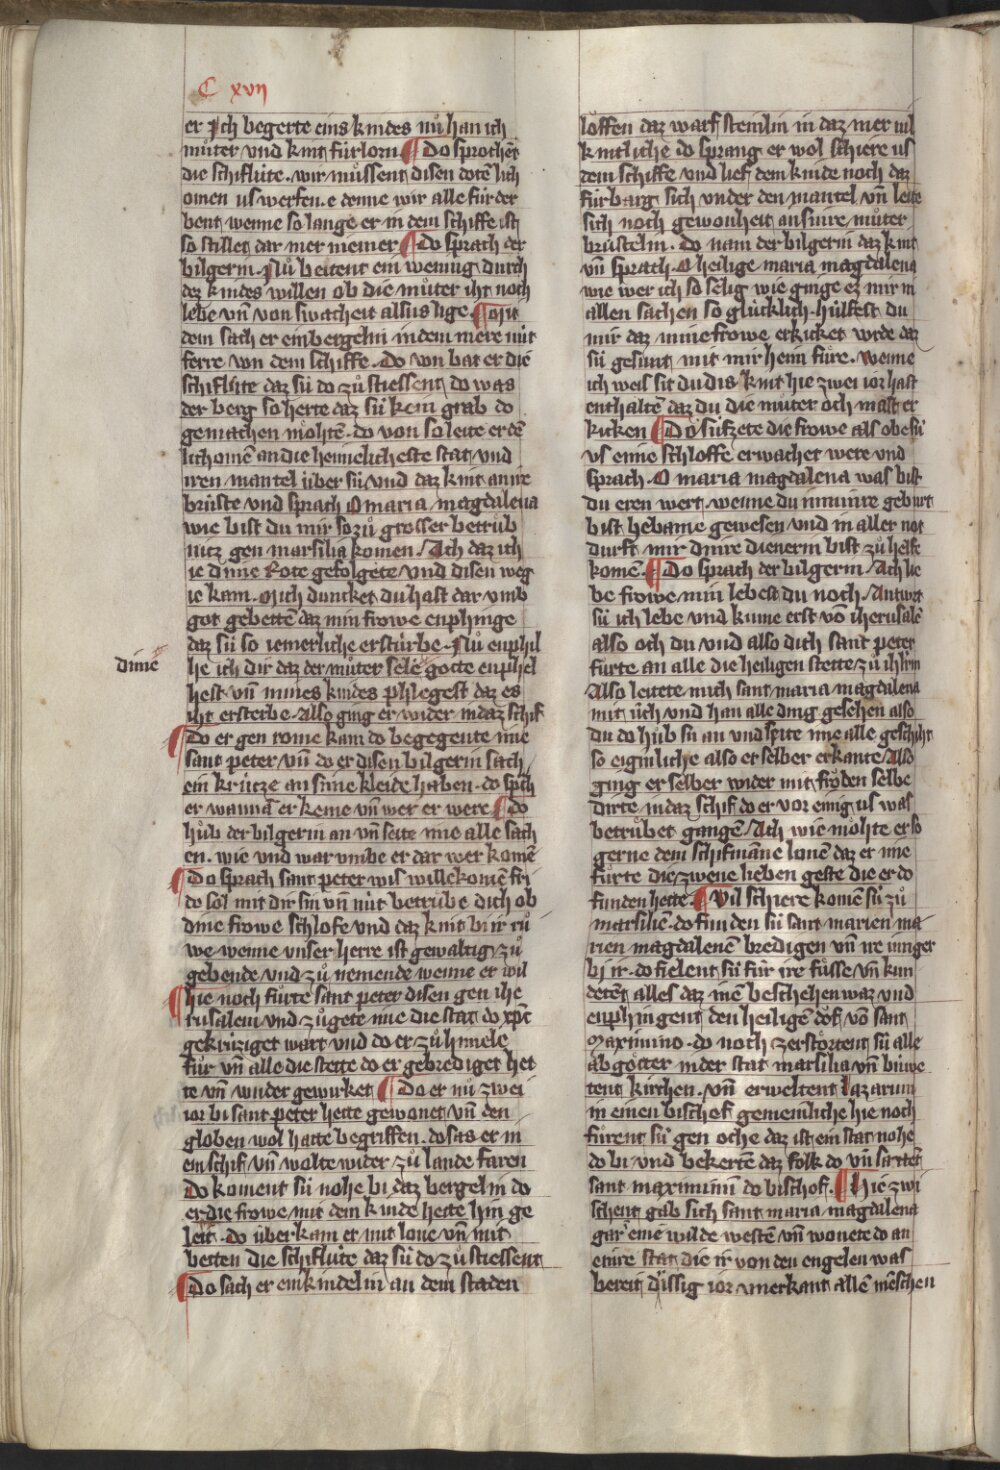 C xvıı
er Ich begerte eins kindes nu̍ han ich
mu̍ter vnd kint fu̍rlorn ¶ Do sprochēt
die schiflu̍te. wir mu̍ssent disen dotē lich
omen us werfen. e denne wir alle fu̍r der
bent wenne so lange er in dem schiffe ist
so stillet dar mer niemer ¶ Do sprach der
bilgerin. Nu̍ beitent ein wennig durch
dez kindes willen ob die mu̍ter iht noch
lebe vn̄ von swacheit alsus lige ¶ Mit
dem sach er ein bergelin in dem mere nu̍t
ferre von dem schiffe. Do von bat er die
schiflu̍te daz su̍ do zu̍ stiessent do was
der berg so herte daz su̍ kein grab do
gemachen mo̍hten. do von so leite er dē
lichomē an die heimelicheste stat vnd
iren mantel u̍ber su̍ vnd daz kint an ire
bru̍ste vnd sprach O maria magdalena
wie bist du mir so zu̍ grosser betru̍b
nicz gen marsilia komen / Ach daz ich
ie dime Rote gefolgete vnd disen weg
ie kam. Mich duncket du hast dar vmb
got gebettē daz min frowe enphinge
daz su̍ so iemerliche ersturbe. Nu̍ enphil
dinē
he ich dir daz der mu̍ter sele gotte enphel
hest vn̄ mines kindes phlegest daz es
iht ersterbe. Also ging er wider in daz schif
¶ Do er gen rome kam do begegente ime
sant peter vn̄ do er disen bilgerin sach
ein kru̍tze an sime kleide haben. do sp̄ch
er wannā er keme vn̄ wer er were ¶ Do
hu̍b der bilgerin an vn̄ seite ime alle sach
en. wie vnd war vmbe er dar wer komē
¶ Do sprach sant peter wis willekomē fri
do sol mit dir sin vn̄ nu̍t betru̍be dich ob
dine frowe schlofe vnd daz kint bi ir ru̍
we wenne vnser herre ist gewaltig zu̍
gebende vnd zu̍ nemende wenne er wil
¶ hie noch fu̍rte sant peter disen gen ihe
rusalem vnd zo̍gete ime die stat do xp̄c
gekru̍ziget wart vnd do er zu̍ himele
fu̍r vn̄ alle die stette do er gebrediget het
te vn̄ wnder gewirket ¶ Do er nu̍ zwei
ior bi sant peter hette gewonet vn̄ den
globen wol hatte begriffen. do sas er in
ein schif vn̄ wolte wider zu̍ lande faren
Do koment su̍ nohe bi daz bergelin do
er die frowe mit dem kinde hette hin ge
leit. do u̍berkam er mit lone vn̄ mit
betten die schiflu̍te daz su̍ do zu̍ stiessent
¶ Do sach er ein kindelin an dem staden
lo̍ffen daz warf steinlin in daz mer vil
kintliche do sprang er wol schiere us
dem schiffe vnd lief dem kinde noch daz
fu̍rbarg sich vnder den mantel vn̄ leite
sich noch gewonheit an sinre mu̍ter
bru̍stelin. do nam der bilgerin daz kint
vn̄ sprach. O heilige maria magdalena
wie wer ich so selig wie ginge ez mir in
allen sachen so glu̍cklich. hu̍lfest du
mir daz mine frowe erkicket wrde daz
su̍ gesunt mit mir heim fu̍re. Wenne
ich weis sit du dis kint hie zwei ior hast
enthaltē daz du die mu̍ter och maht er
kicken ¶ Do su̍fzete die frowe als obe su̍
vs eime schloffe erwachet wete vnd
sprach. O maria magdalena was bist
du eren wert. wenne du in minre geburt
bist hebame gewesen vnd in aller not
durft mir dinre dienerin bist zu̍ helfe
komē. ¶ Do sprach der bilgerin / Ach lie
be frowe min lebest du noch. Antwrt
su̍ ich lebe vnd kume erst vō iherusalē
also och du vnd also dich sant peter
fu̍rte an alle die heiligen stette zu̍ ihrlm̄
Also leitete mich sant maria magdalena
mit u̍ch vnd han alle ding gesehen also
du do hu̍b su̍ an vnd seite ime alle geschiht
so eiginliche also er selber erkante / Also
ging er selber wider mit fro̍den selbe
dirte in daz schif do er vor einig us was
betru̍bet gangē / Ach wie mo̍hte er so
gerne dem schifmāne lonē daz er ime
fu̍rte die zwene lieben geste die er do
funden hette. ¶ Vil schiere komē su̍ zu̍
marsiliē. do funden su̍ sant marien ma
rien magdalenē bredigen vn̄ ire iunger
bi ir. do fielent su̍ fu̍r ire fu̍sse vn̄ kun
detēt alles daz inē beschehen waz vnd
enphingent den heiligē do̍f vō sant
Maximino. do noch zersto̍rtent su̍ alle
abgo̍tter in der stat marsilia vn̄ buwe
tent kirchen. vn̄ erweltent lazarum
in einen bischof gemeinliche hie noch
fu̍rent su̍ gen oche daz ist ein stat nohe
do bi vnd bekertē daz folk do vn̄ sattēt
sant maximinū do bischof. ¶ hie zwi
schent gab sich sant maria magdalena
gar eine wilde westē vn̄ wonete do an
einre stat die ir von den engelen was
bereit drissig ior vnerkant allē mēschen